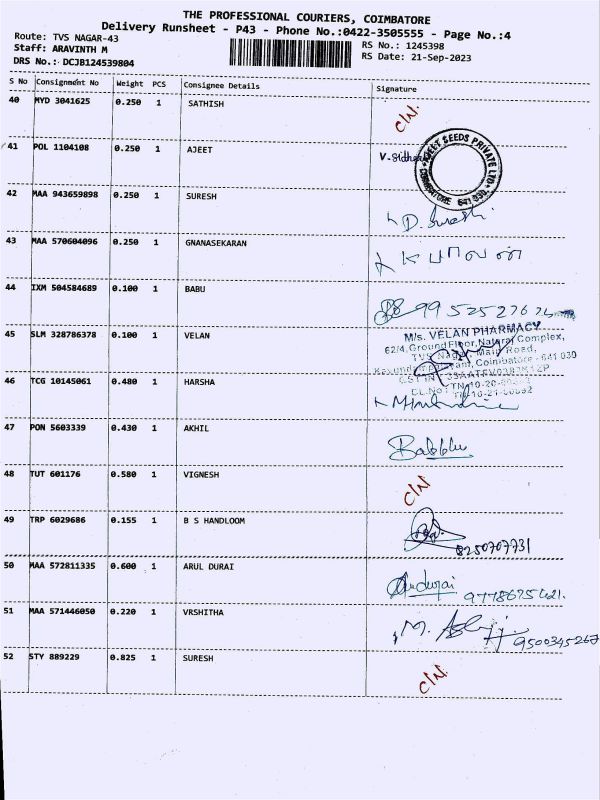 THE PROFESSIONAL COURIERS, COIMBATORE
Delivery Runsheet - P43 - Phone No.:0422-3505555 - Page No.:4
Route: TVS NAGAR-43 RS No.: 1245398
Staff: ARAVINTH M RS Date: 21-Sep-2023
DRS No.: DCJB124539804
S No Consignment No Weight PCS Consignee Details Signature
40 MYD 3041625 0.250 1 SATHISH C/N.
41 POL 1104108 0.250 1 AJEET V. Sidhe
AJEET SEEDS PRIVATE LTD. COIMBATORE 641 030.
42 MAA 943659898 0.250 1 SURESH D. Suresh
43 MAA 570604096 0.250 1 GNANASEKARAN
44 IXM 504584689 0.100 1 BABU
45 SLM 328786378 0.100 1 VELAN
M/s. VELAN PHARMACY
62/4, Ground Floor, Nataraj Complex,
TVS Nagar Main Road,
Coimbatore - 641 030
46 TCG 10145061 0.480 1 HARSHA
47 PON 5603339 0.430 1 AKHIL
48 TUT 601176 0.580 1 VIGNESH C/N
49 TRP 6029686 0.155 1 B S HANDLOOM
8250707731
50 MAA 572811335 0.600 1 ARUL DURAI
51 MAA 571446050 0.220 1 VRSHITHA
9500345267
52 STY 889229 0.825 1 SURESH C/N.